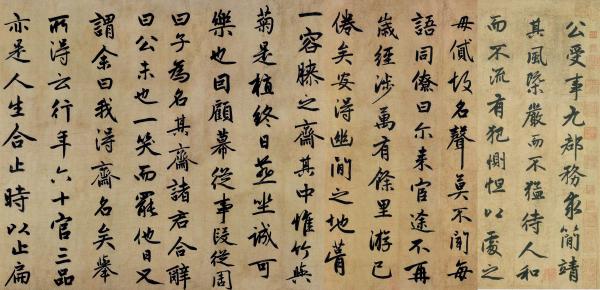 公受事九郡務求簡靖
其風槩嚴而不猛待人和
而不流有犯惻怛以處之
毋貳故名聲莫不聞每
語同僚曰尓来官途不再
歲經涉萬有餘里游已
倦矣安得幽閒之地葺
一容膝之齋其中惟竹與
菊是植終日燕坐誠可
樂也回顧幕從事段從周
曰子為名其齋諸君合辭
曰公未也一笑而罷他日又
謂余曰我得齋名矣舉
所得云行年六十官三品
亦是人生合止時以止扁